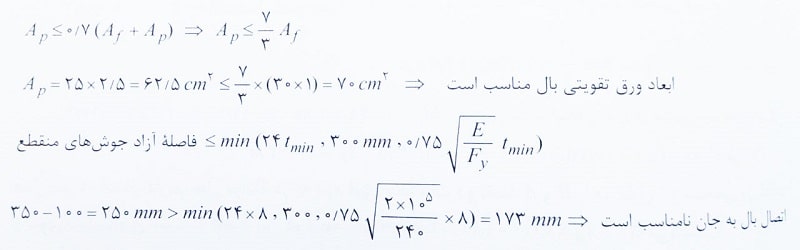 A_p ≤ ۰/۷ (A_f + A_p) ⇒ A_p ≤ ۷/۳ A_f
A_p = ۲۵ × ۲/۵ = ۶۲/۵ cm² ≤ ۷/۳ × (۳۰ × ۱) = ۷۰ cm² ⇒ ابعاد ورق تقویتی بال مناسب است
فاصلهٔ آزاد جوش‌های منقطع ≤ min (۲۴ t_min , ۳۰۰ mm , ۰/۷۵ √(E/F_y) t_min)
۳۵۰ − ۱۰۰ = ۲۵۰ mm > min (۲۴ × ۸ , ۳۰۰ , ۰/۷۵ √(۲ × ۱۰⁵/۲۴۰) × ۸) = ۱۷۳ mm ⇒ اتصال بال به جان نامناسب است